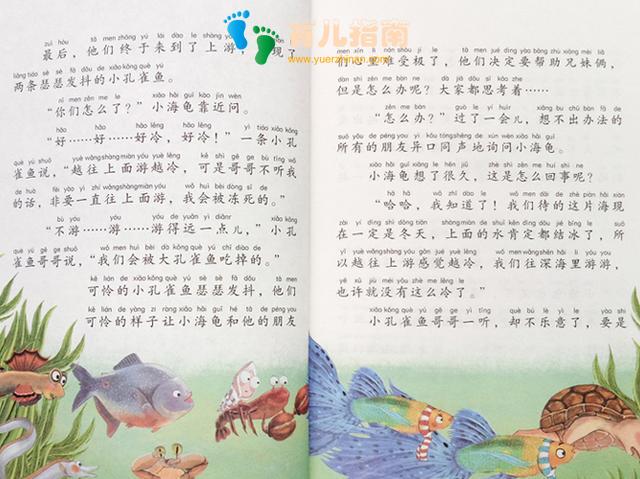 育儿指南
www.yuerzhinan.com
zuì hòu tā men zhōng yú lái dào le shàng yóu
最后，他们终于来到了上游，现了
liǎng tiáo sè sè fā dǒu de xiǎo kǒng què yú
两条瑟瑟发抖的小孔雀鱼。
nǐ men zěn me le xiǎo hǎi guī kào jìn wèn
“你们怎么了？”小海龟靠近问。
hǎo hǎo hǎo lěng hǎo lěng yì tiáo xiǎo kǒng
“好……好……好冷，好冷！”一条小孔
què yú shuō yuè wǎng shàng miàn yóu yuè lěng kě shì gē ge bù tīng wǒ
雀鱼说，“越往上面游越冷，可是哥哥不听我
de huà fēi yào yì zhí wǎng shàng miàn yóu wǒ huì bèi dòng sǐ de
的话，非要一直往上面游，我会被冻死的。”
bù yóu yóu de yuǎn yì diǎnr xiǎo kǒng
“不游……游……游得远一点儿，”小孔
què yú gē ge shuō wǒ men huì bèi dà kǒng què yú chī diào de
雀鱼哥哥说，“我们会被大孔雀鱼吃掉的。”
kě lián de xiǎo kǒng què yú sè sè fā dǒu tā men
可怜的小孔雀鱼瑟瑟发抖，他们
kě lián de yàng zi ràng xiǎo hǎi guī hé tā de péng you
可怜的样子让小海龟和他的朋友
men xīn lǐ nán shòu jí le tā men jué dìng yào bāng zhù xiōng mèi liǎ
们心里难受极了，他们决定要帮助兄妹俩，
dàn shì zěn me bàn ne dà jiā dōu sī kǎo zhe
但是怎么办呢？大家都思考着……
zěn me bàn guò le yí huìr xiǎng bu chū bàn fǎ de
“怎么办？”过了一会儿，想不出办法的
suǒ yǒu de péng you yì kǒu tóng shēng de xún wèn xiǎo hǎi guī
所有的朋友异口同声地询问小海龟。
xiǎo hǎi guī xiǎng le hěn jiǔ zhè shì zěn me huí shì ne
小海龟想了很久，这是怎么回事呢？
hā hā wǒ zhī dào le wǒ men dāi de zhè piàn hǎi xiàn
“哈哈，我知道了！我们待的这片海现
zài yí dìng shì dōng tiān shàng miàn de shuǐ kěn dìng dōu jié bīng le suǒ
在一定是冬天，上面的水肯定都结冰了，所
yǐ yuè wǎng shàng yóu gǎn jué yuè lěng wǒ men wǎng shēn hǎi lǐ yóu you
以越往上游感觉越冷，我们往深海里游游，
yě xǔ jiù méi yǒu zhè me lěng le
也许就没有这么冷了。”
xiǎo kǒng què yú gē ge yì tīng què bú lè yì le yào shi
小孔雀鱼哥哥一听，却不乐意了，要是